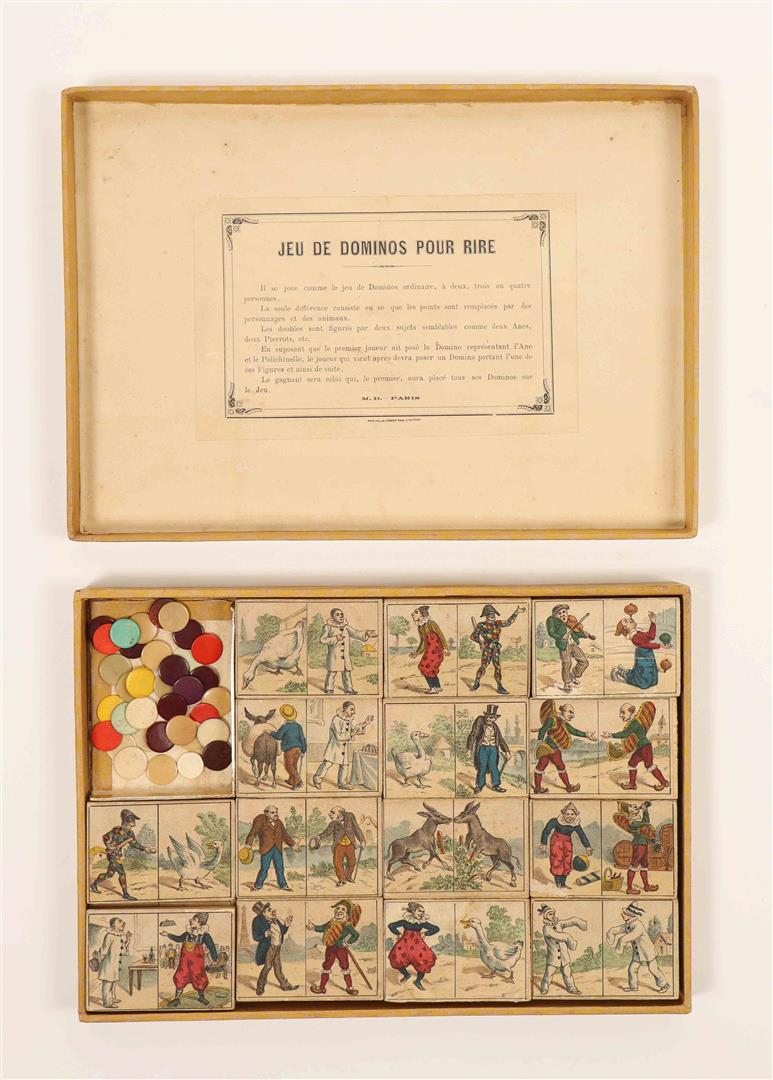 JEU DE DOMINOS POUR RIRE
Il se joue comme le jeu de Dominos ordinaire, à deux, trois ou quatre
personnes.
La seule différence consiste en ce que les points sont remplacés par des
personnages et des animaux.
Les doubles sont figurés par deux sujets semblables comme deux Anes,
deux Pierrots, etc.
En suposant que le premier joueur ait posé le Domino représentant l'Ane
et le Polichinelle, le joueur qui vient après devra poser un Domino portant l'une de
ces Figures et ainsi de suite.
Le gagnant sera celui qui, le premier, aura placé tous ses Dominos sur
le Jeu.
M. D. - PARIS